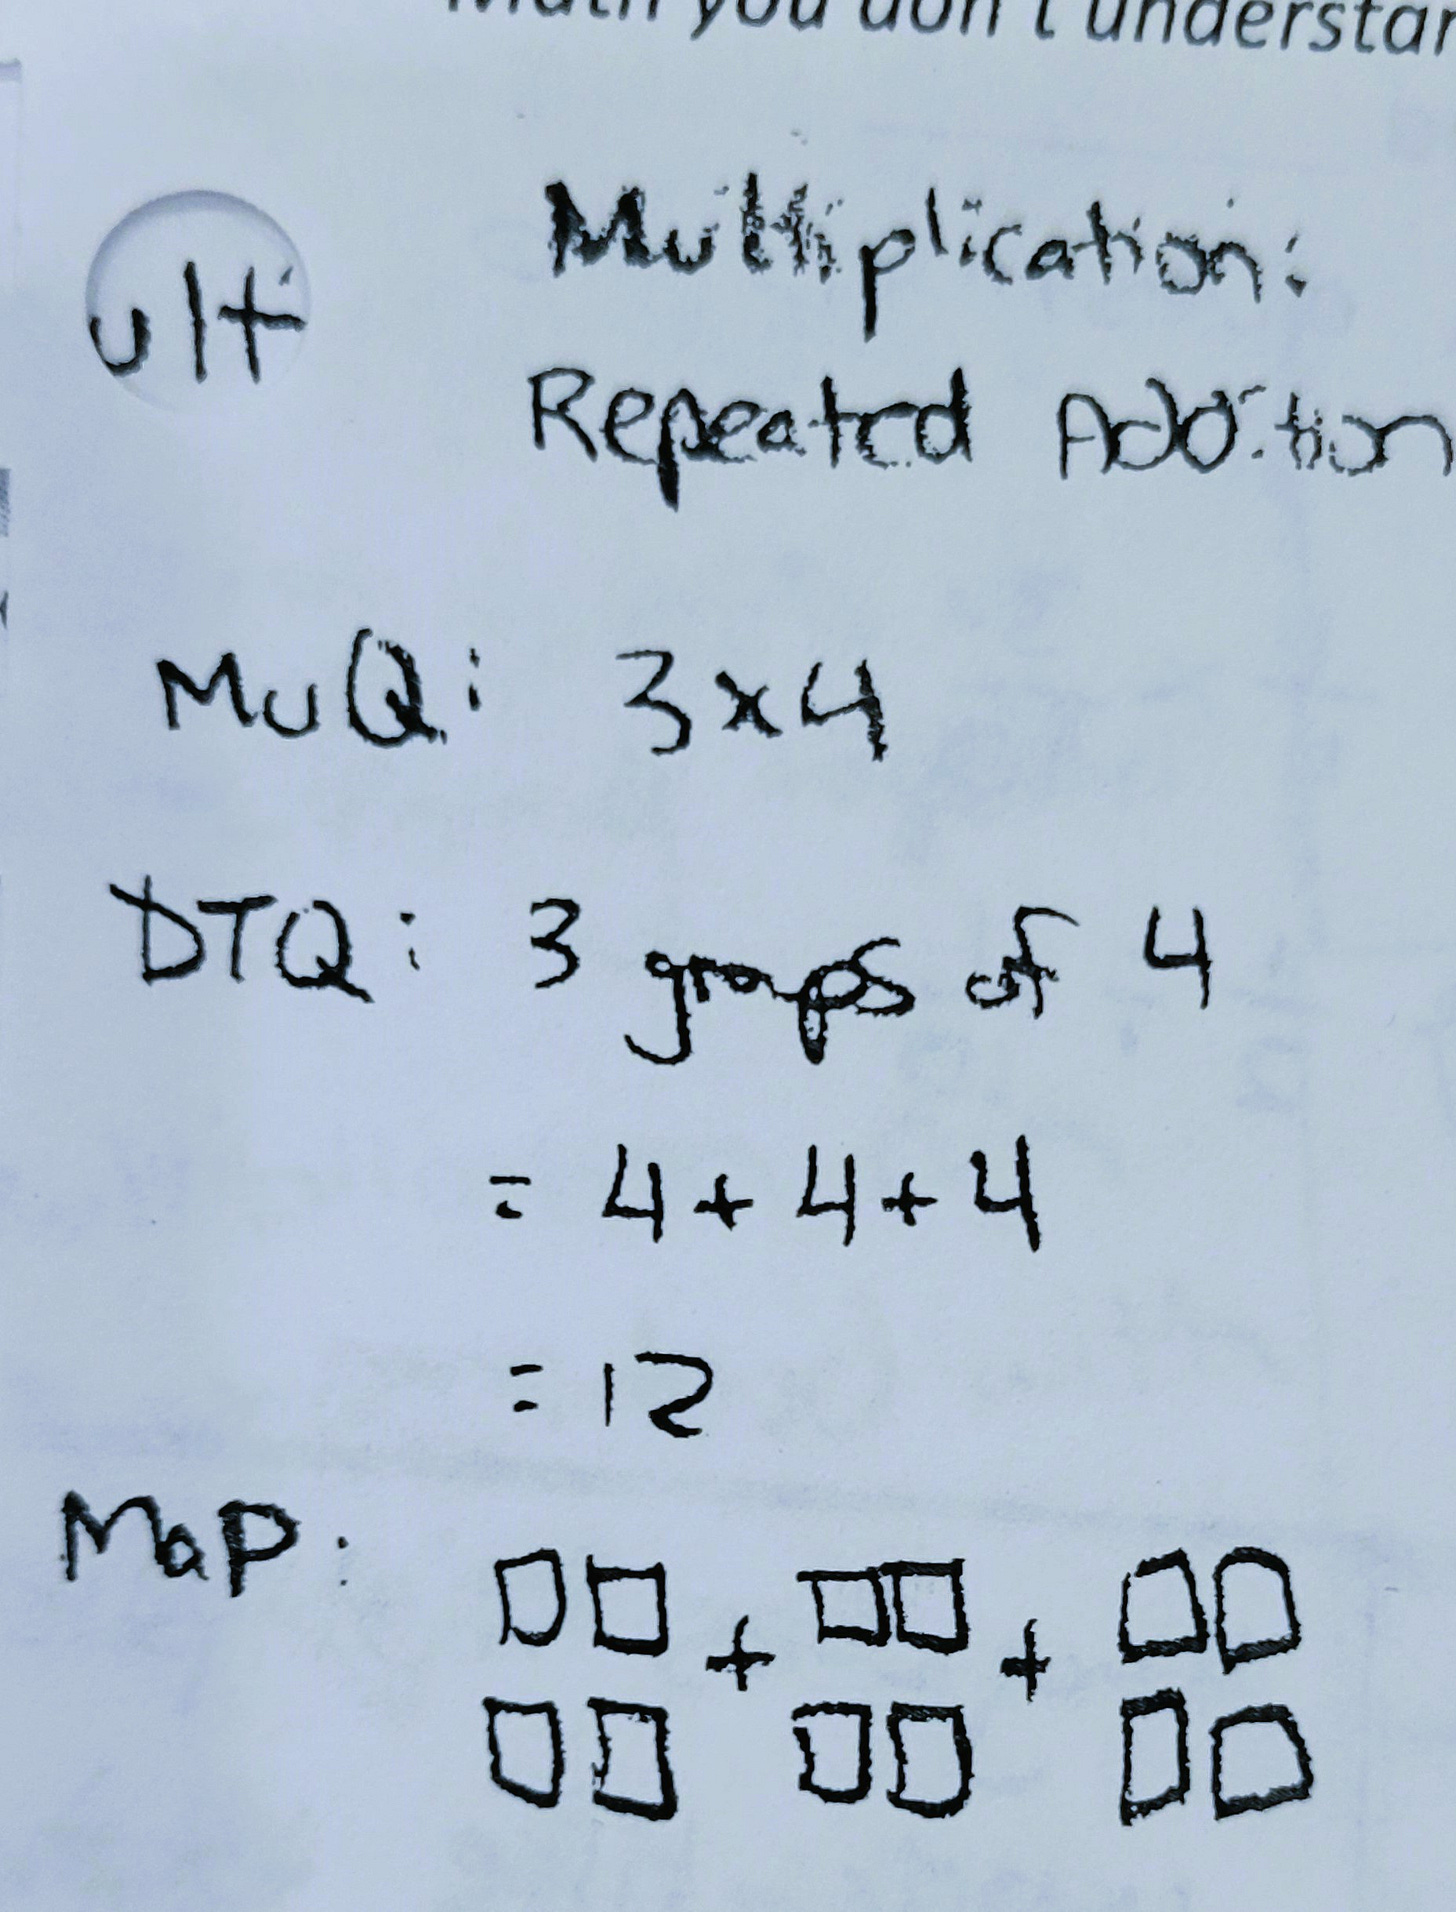 Math you don't understan
ult
Multiplication:
Repeated Addition
MuQ: 3x4
DTQ: 3 groups of 4
= 4 + 4 + 4
= 12
MaP:
+ +